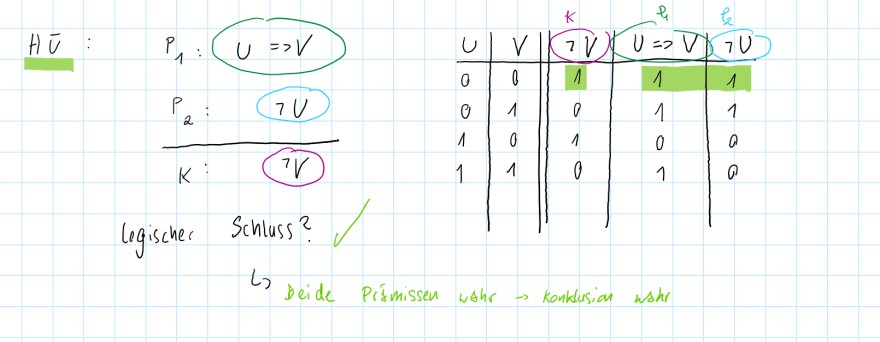 HÜ : P₁ : U => V
P₂ : ¬U
K : ¬V
logischer Schluss? ✓
↳ beide Prämissen wahr → Konklusion wahr
K P₁ P₂
U V ¬V U => V ¬U
0 0 1 1 1
0 1 0 1 1
1 0 1 0 0
1 1 0 1 0